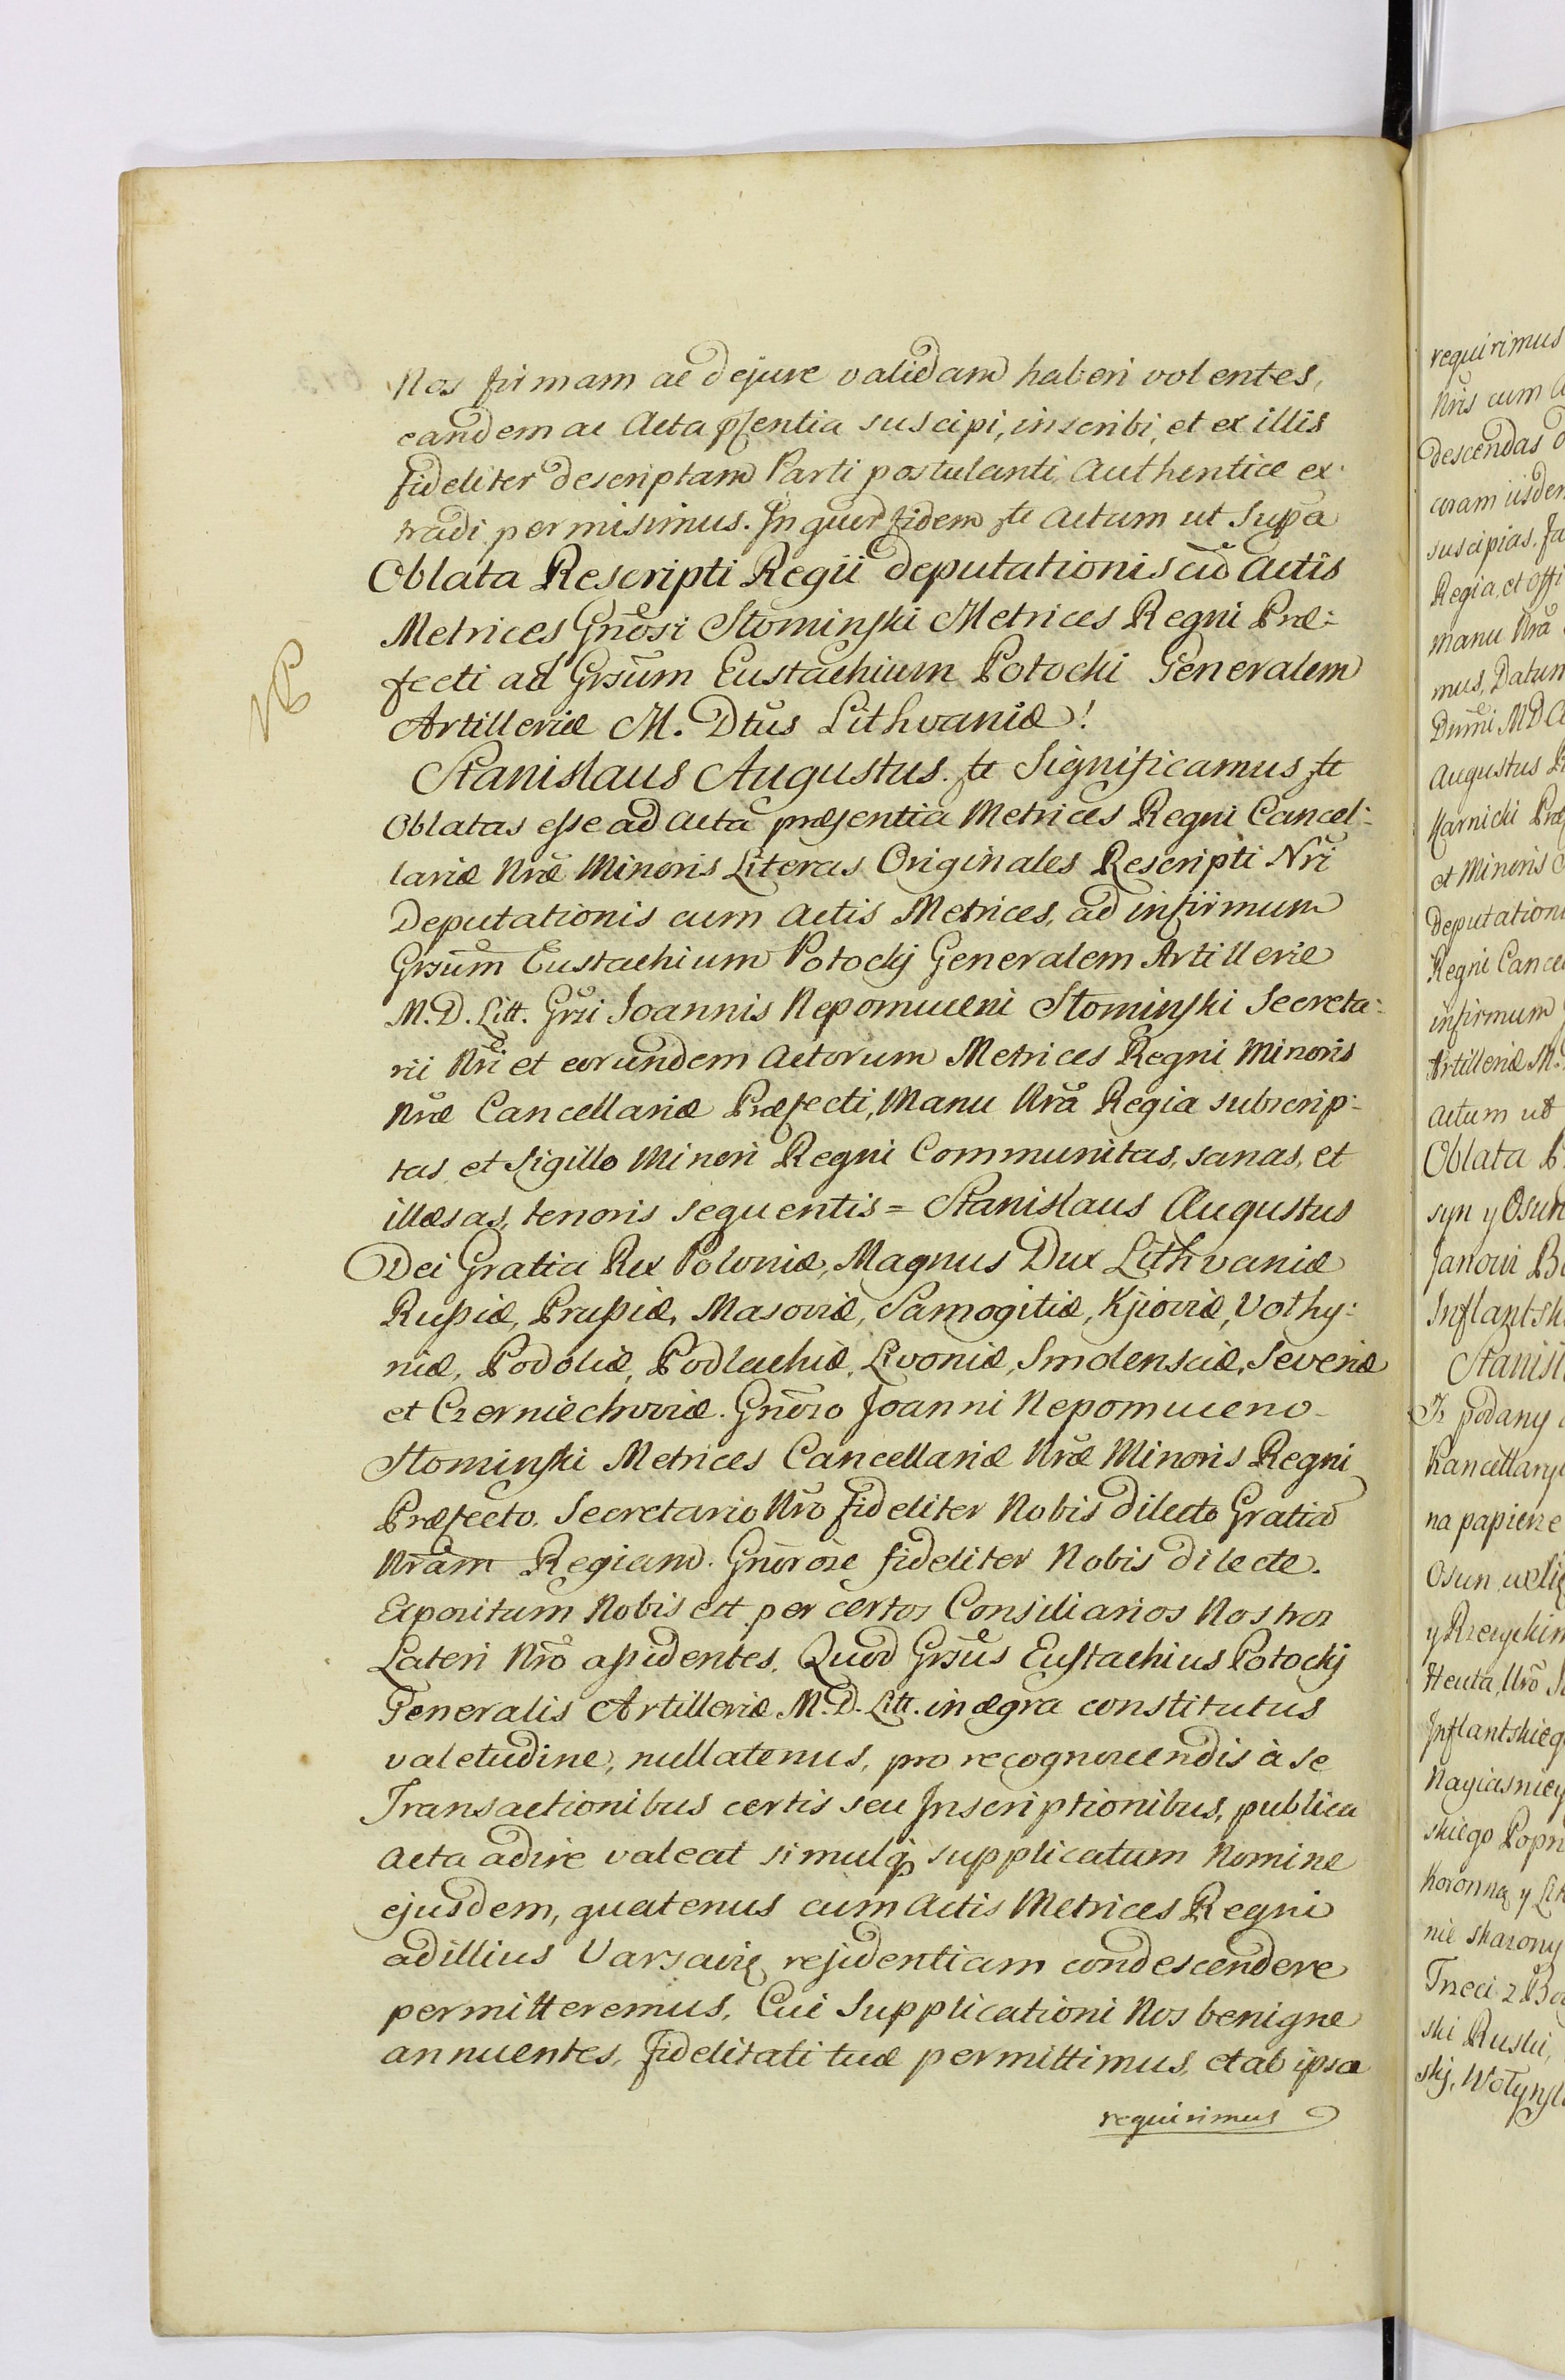 Nos firmam ac dejure validam haberi volentes,
eandem ac Acta pſentia suscipi, inscribi, et ex illis
fideliter descriptam Parti postulanti Authentice ex-
tradi permisimus. In quor fidem &c Actum ut Supa
Oblata Rescripti Regii deputationis cu Actis
Metrices Gnosi Słominski Metrices Regni Præ:
fecti ad Grsum Eustachium Potocki Generalem
Artilleriæ M. Dtus Lithvaniæ!
NB
Stanislaus Augustus. &c Significamus &c
Oblatas eſse ad Acta præsentia Metrices Regni Cancel:
lariæ Nræ Minoris Literas Originales Rescripti Nri
Deputationis cum Actis Metrices, ad infirmum
Grsum Eustachium Potockij Generalem Artilleriæ
M. D. Litt. Grsi Joannis Nepomuceni Słominski Secreta:
rii Nri et eorundem Actorum Metrices Regni Minoris
Nræ Cancellariæ Præfecti, Manu Nra Regia subscrip:
tas, et Sigillo Minori Regni Communitas, sanas, et
illæsas, tenoris sequentis = Stanislaus Augustus
Dei Gratia Rex Poloniæ, Magnus Dux Lithvaniæ
Rußiæ, Prußiæ, Masoviæ, Samogitiæ, Kijoviæ, Volhy:
niæ, Podoliæ, Podlachiæ, Livoniæ, Smolensciæ, Severiæ
et Czerniechoviæ. Gnoso Joanni Nepomuceno
Słominski Metrices Cancellariæ Nræ Minoris Regni
Præfecto, Secretario Nro fideliter Nobis dilecto Gratia
Nram Regiam. Gnorose fideliter Nobis dilecte.
Expositum Nobis est per certos Consiliarios Nostros
Lateri Nro aßidentes, Quod Grsus Eustachius Potockij
Generalis Artilleriæ M. D. Litt. in ægra constitutus
valetudine, nullatenus, pro recognoscendis à se
Transactionibus certis seu Inscriptionibus, publica
Acta adire valeat simulq supplicatum Nomine
ejusdem, quatenus cum Actis Metrices Regni
ad illius Varsavię residentiam condescendere
permitteremus, Cui Supplicationi Nos benigne
annuentes, fidelitati tuæ permittimus, et ab ipsa
requirimus
requirimus
Nris cum
descendas
coram iisdem
suscipias. Ja
Regia, et Offi
manu Nra
mus, Datum
Dnmi MDC
Augustus
Karnicki Præ
et Minoris
Deputation
Regni Cance
infirmum
Artilleriæ M.
Actum ut
Oblata
syn y Osun
Janowi
Inflantsk
Stanisl
Iż podany
Kancellary
na papierze
Osun
y Rzeczykim
Heuta, Uro
Inflantskieg
Nayiasniey
skiego Popr
Koronną y Lit
nie skazony
Trzeci z Bo
ski Ruski,
skij, Wołynsk